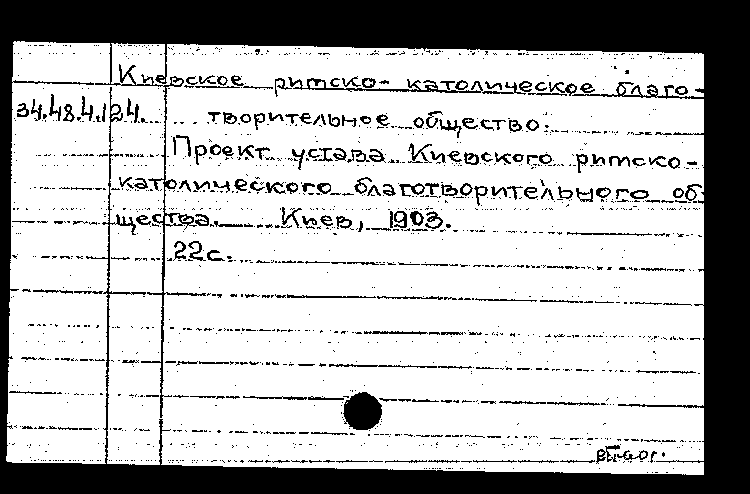 Киевское римско-католическое благо-
34.48.4.124. творительное общество.
Проект устава Киевского римско-
католического благотворительного об
щества. Киев, 1903.
22с.